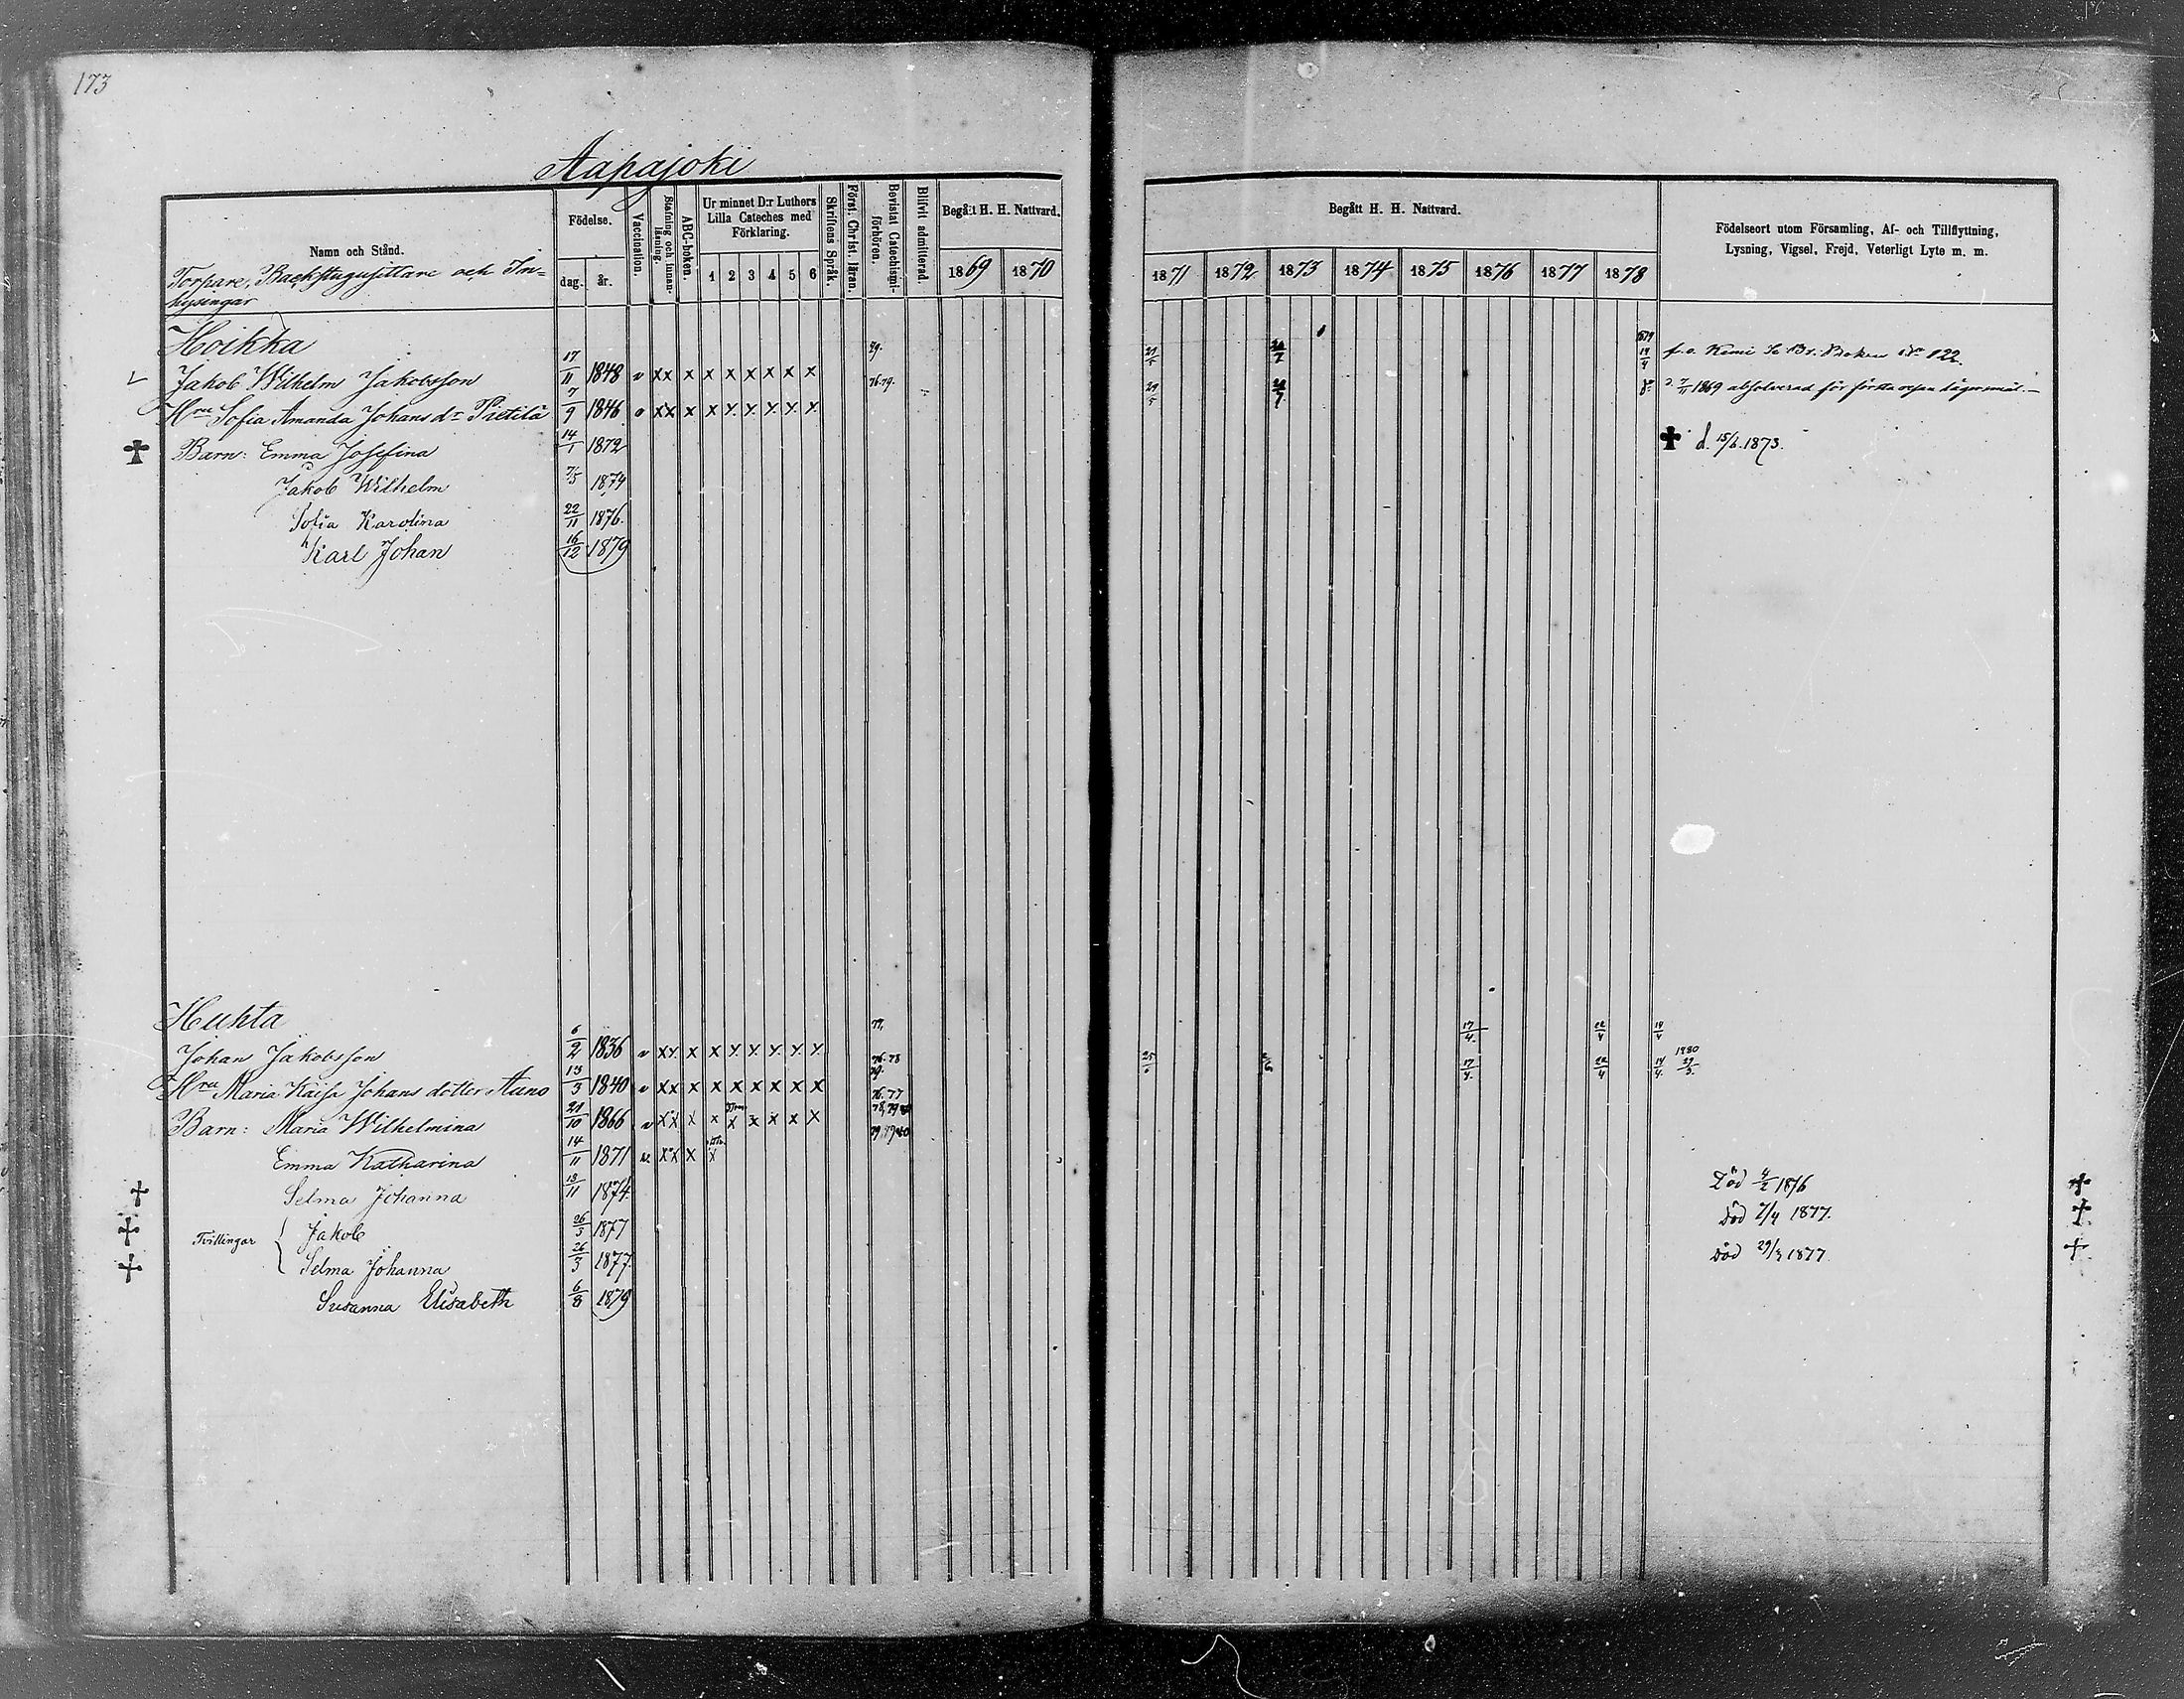 173
Aapajoki
Namn och Stånd.
Torpare, Backstugusittare och In-
hysingar
Födelse.
dag. år.
Vaccination.
Stafning och innan-
läsning.
ABC-boken.
Ur minnet D:r Luthers
Lilla Cateches med
Förklaring.
1 2 3 4 5 6
Skriftens Språk.
Först. Christ. läran.
Bevistat Catechismi-
förhören.
Blifvit admitterad.
Begått H. H. Nattvard.
1869 1870
Begått H. H. Nattvard.
1871 1872 1873 1874 1875 1876 1877 1878
Födelseort utom Församling, Af- och Tillflyttning,
Lysning, Vigsel, Frejd, Veterligt Lyte m. m.
Hoikka
Jakob Wilhelm Jakobsson 17/11 1848 v xx x x x x x x x 79. 1879 14/4 f. o. Kemi Se Br. Boken No 122.
Hru Sofia Amanda Johans dr Pietilä 7/9 1846 xx x x x x x x x 76.79. 7/11 1869 absolverad för första resan lägersmål.—
Barn: Emma Josefina 14/1 1872 d. 15/6. 1873.
Jakob Wilhelm 7/5 1874
Sofia Karolina 22/11 1876.
Karl Johan 16/12 1879
Huhta
Johan Jakobsson 6/2 1836 v xx x x x x x x x 79. 17/4. 22/4 14/4
Hru Maria Kaisa Johans dotter Auno 13/3 1840 v xx x x x x x x x 76.78 79. 25/6 17/4. 22/4 14/4. 1880
Barn: Maria Wilhelmina 21/10 1866 v xx x x x x x x x 76.77 78,79
Emma Katharina 14/11 1871 v xx x x
Selma Johanna 13/11 1874. Död 4/2 1876
Tvillingar { Jakob 26/3 1877 Död 7/4 1877.
Selma Johanna 26/3 1877. Död 29/3 1877
Susanna Elisabeth 6/8 1879